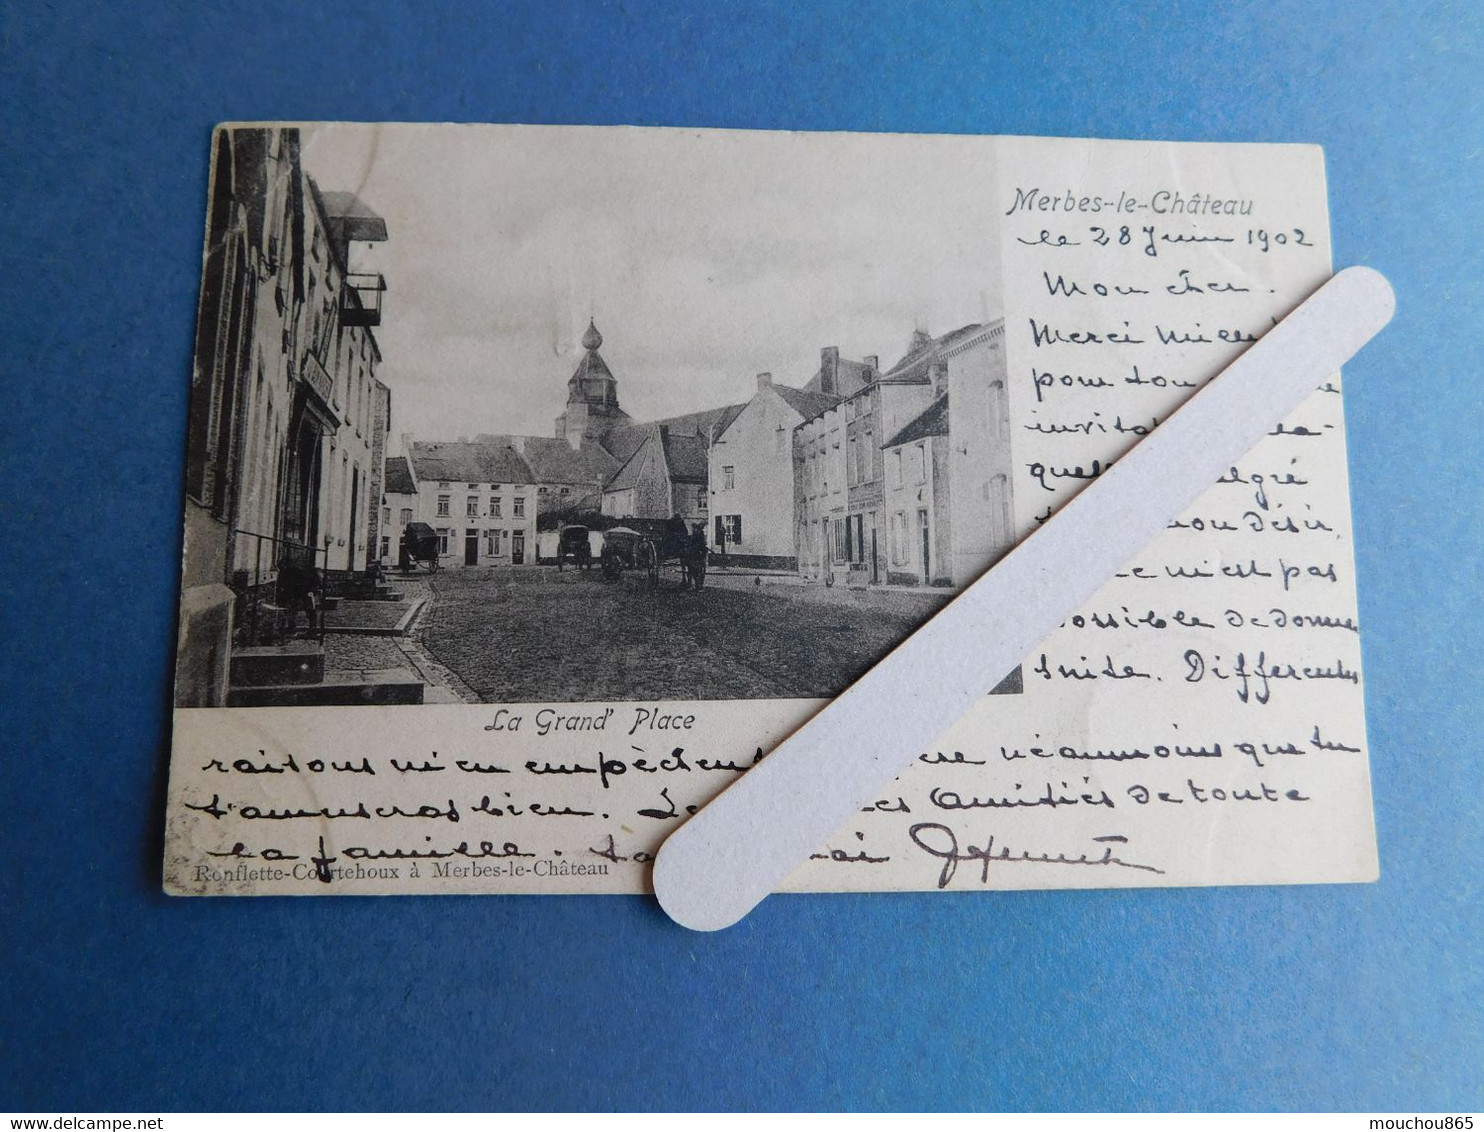 Merbes-le-Château
le 28 Juin 1902
Mon cher.
Merci mille
pour ton
invitat la-
quel lgré
mon désir,
n'est pas
possible de donner
suite. Différentes
La Grand' Place
raisons m'en empêchent néanmoins que tu
t'amuseras bien. amitiés de toute
la famille.
Ronflette-Courtehoux à Merbes-le-Château
mouchou865